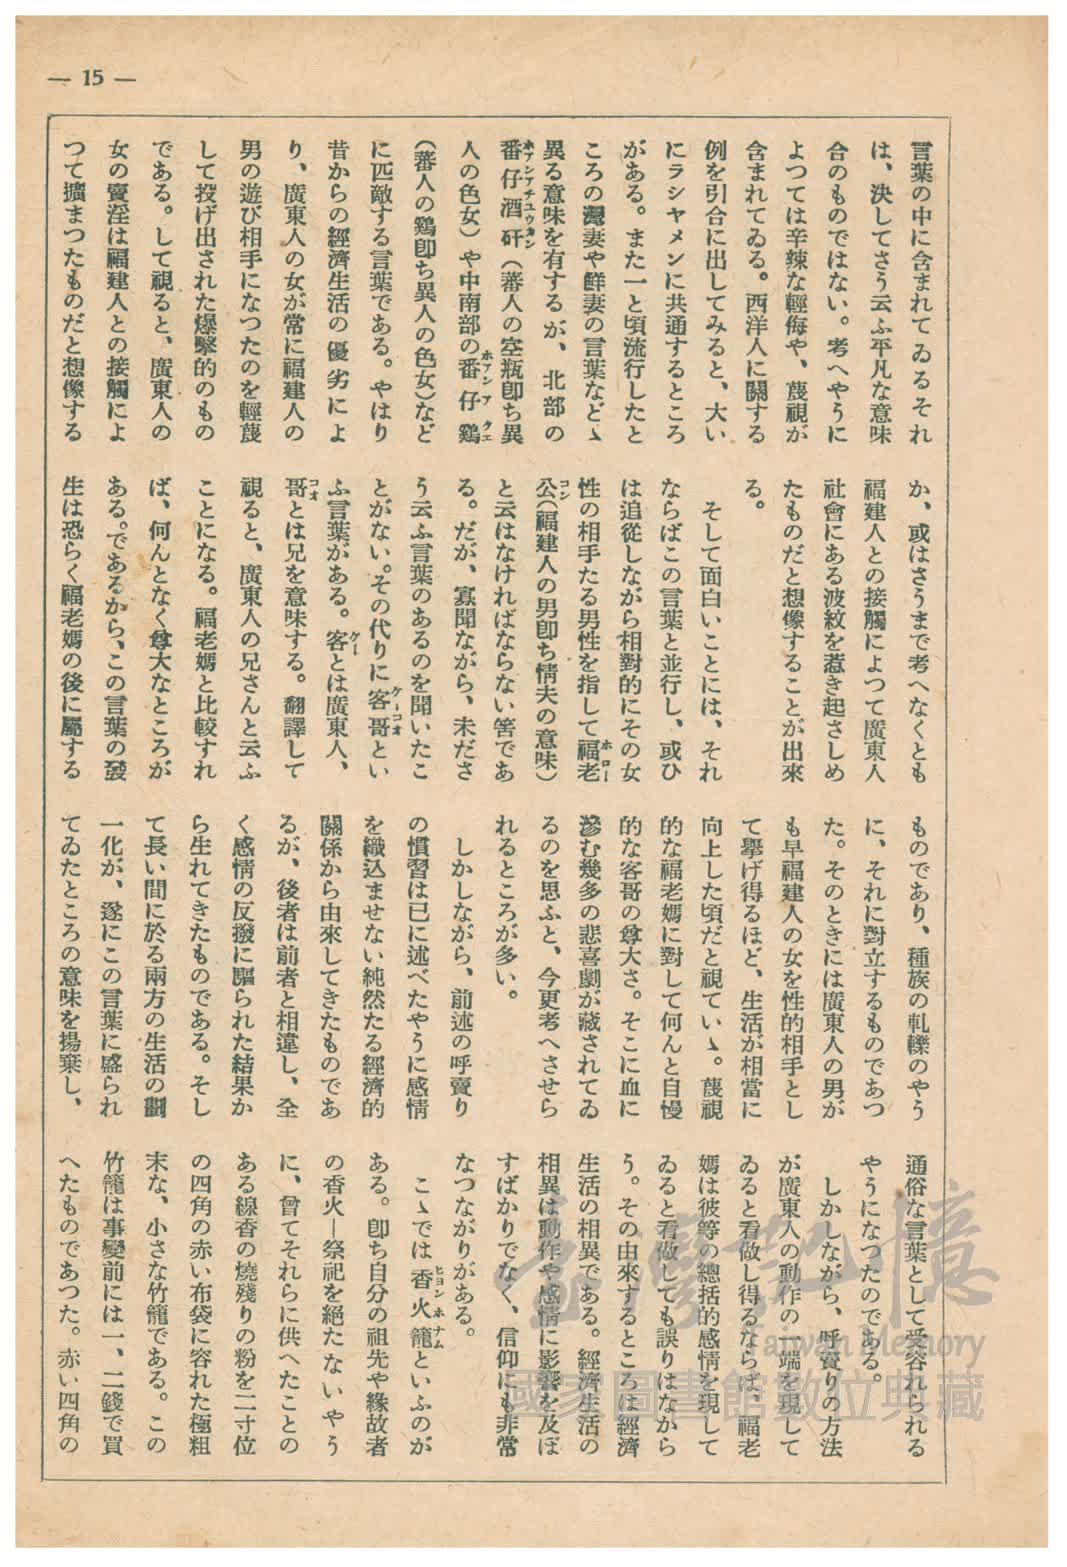 — 15 —
言葉の中に含まれてゐるそれ
は、決してさう云ふ平凡な意味
合のものではない。考へやうに
よつては辛辣な輕侮や、蔑視が
含まれてゐる。西洋人に關する
例を引合に出してみると、大い
にラシヤメンに共通するところ
がある。また一と頃流行したと
ころの灣妻や鮮妻の言葉などゝ
異る意味を有するが、北部の
番仔酒矸（蕃人の空瓶卽ち異
ホアンアチユウカン
人の色女）や中南部の番仔鷄
ホアンアクエ
（蕃人の鷄卽ち異人の色女）など
に匹敵する言葉である。やはり
昔からの經濟生活の優劣によ
り、廣東人の女が常に福建人の
男の遊び相手になつたのを輕蔑
して投げ出された爆擊的のもの
である。して視ると、廣東人の
女の賣淫は福建人との接觸によ
つて擴まつたものだと想像する
か、或はさうまで考へなくとも
福建人との接觸によつて廣東人
社會にある波紋を惹き起さしめ
たものだと想像することが出來
る。
そして面白いことには、それ
ならばこの言葉と並行し、或ひ
は追從しながら相對的にその女
性の相手たる男性を指して福老
ホロー
公（福建人の男卽ち情夫の意味）
コン
と云はなければならない筈であ
る。だが、寡聞ながら、未ださ
う云ふ言葉のあるのを聞いたこ
とがない。その代りに客哥とい
ケーコオ
ふ言葉がある。客とは廣東人、
ケー
哥とは兄を意味する。翻譯して
コオ
視ると、廣東人の兄さんと云ふ
ことになる。福老媽と比較すれ
ば、何んとなく尊大なところが
ある。であるから、この言葉の發
生は恐らく福老媽の後に屬する
ものであり、種族の軋轢のやう
に、それに對立するものであつ
た。そのときには廣東人の男が
も早福建人の女を性的相手とし
て擧げ得るほど、生活が相當に
向上した頃だと視ていゝ。蔑視
的な福老媽に對して何んと自慢
的な客哥の尊大さ。そこに血に
滲む幾多の悲喜劇が藏されてゐ
るのを思ふと、今更考へさせら
れるところが多い。
しかしながら、前述の呼賣り
の慣習は已に述べたやうに感情
を織込ませない純然たる經濟的
關係から由來してきたものであ
るが、後者は前者と相違し、全
く感情の反撥に驅られた結果か
ら生れてきたものである。そし
て長い間に於る兩方の生活の劃
一化が、遂にこの言葉に盛られ
てゐたところの意味を揚棄し、
通俗な言葉として受容れられる
やうになつたのである。
しかしながら、呼賣りの方法
が廣東人の動作の一端を現して
ゐると看做し得るならば、福老
媽は彼等の總括的感情を現して
ゐると看做しても誤りはなから
う。その由來するところは經濟
生活の相異である。經濟生活の
相異は動作や感情に影響を及ぼ
すばかりでなく、信仰にも非常
なつながりがある。
こゝでは香火籠といふのが
ヒヨンホナム
ある。卽ち自分の祖先や緣故者
の香火―祭祀を絕たないやう
に、曾てそれらに供へたことの
ある線香の燒殘りの粉を二寸位
の四角の赤い布袋に容れた極粗
末な、小さな竹籠である。この
竹籠は事變前には一、二錢で買
へたものであつた。赤い四角の
臺灣記憶
Taiwan Memory
國家圖書館數位典藏